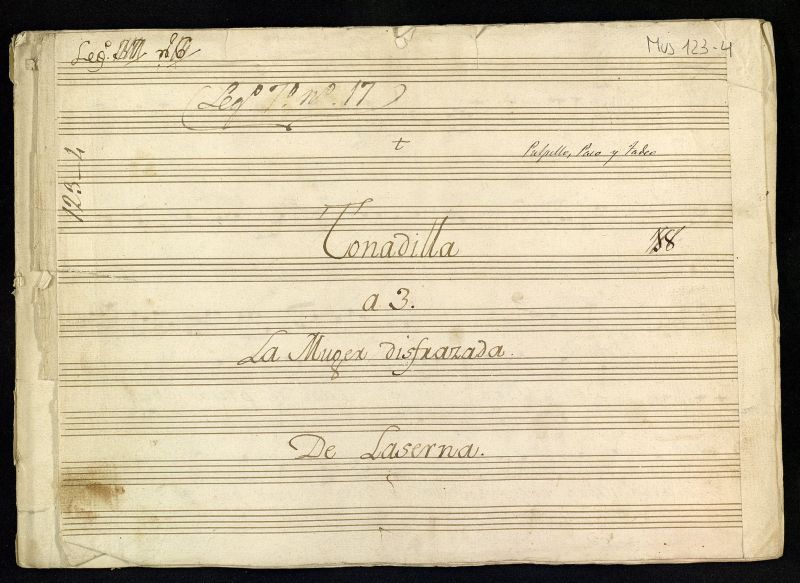 Leg.º
Mus 123-4
(Leg.º 7.º nº. 17)
Pulpillo, Paco y Tadeo
123-4
Tonadilla
18
a 3.
La Muger disfrazada.
De Laserna.